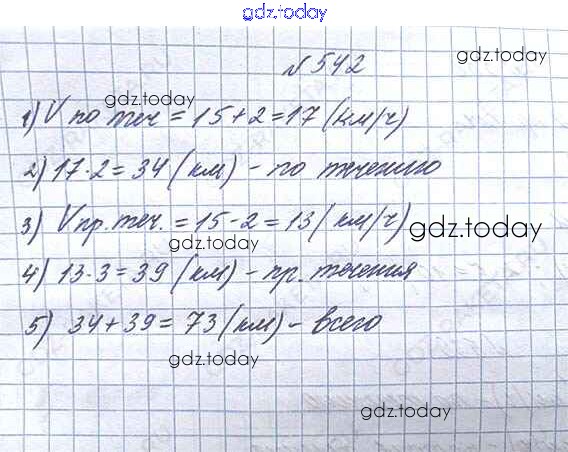 gdz.today
№542
gdz.today
gdz.today
1) V по теч = 15 + 2 = 17 (км/ч)
2) 17·2 = 34 (км) - по течению
3) Vпр. теч. = 15 - 2 = 13 (км/ч)
gdz.today
gdz.today
4) 13·3 = 39 (км) - пр. течения
5) 34 + 39 = 73 (км) - всего
gdz.today
gdz.today